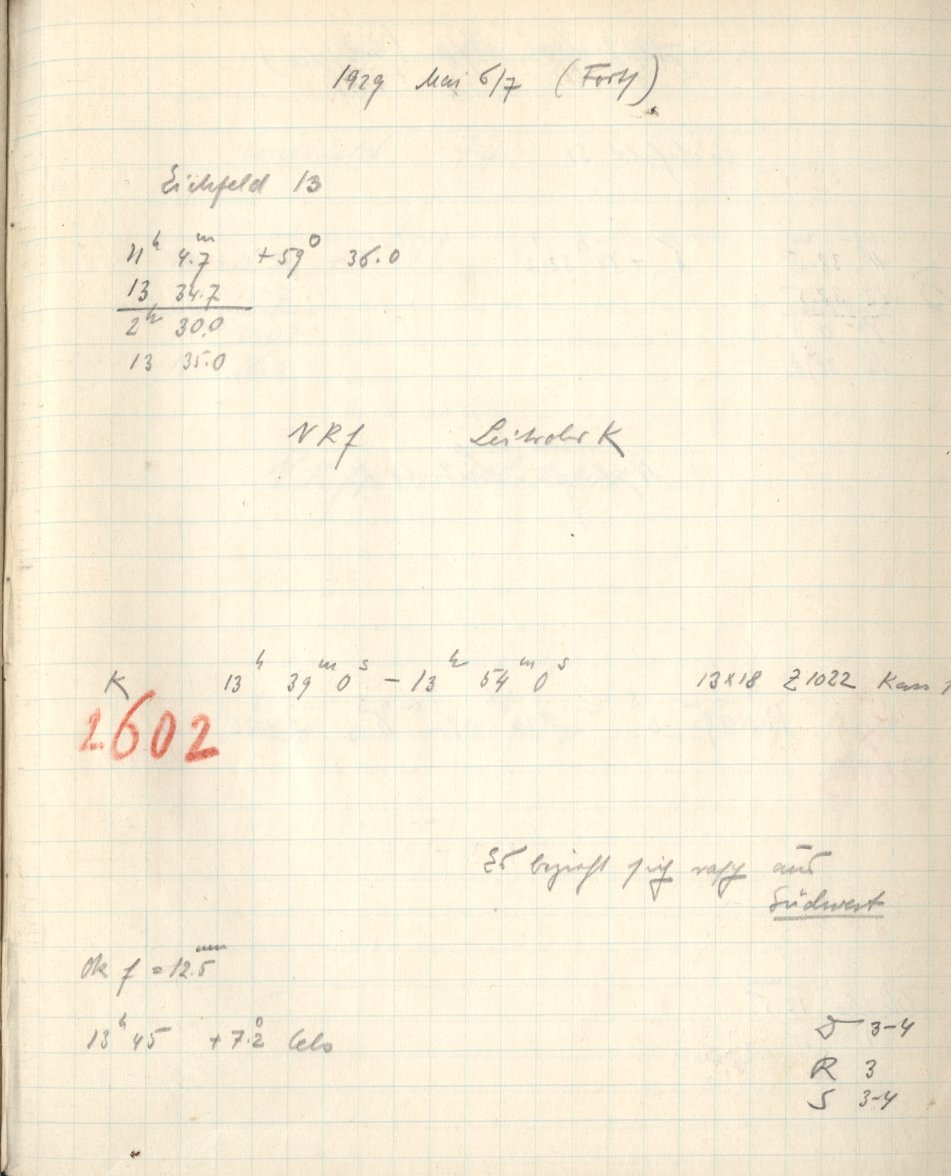 1929 Mai 6/7 (Forts)
Eichfeld 13
11h 4.7m +59° 36.0
13 34.7
2h 30.0
13 35.0
NRf Leitrohr K
K 13h 39m 0s - 13h 54m 0s 13x18 Z1022 Kass 1
2602
Es bezieht sich rasch aus
Südwest
Ok f = 12.5mm
13h 45 +7.2° Cels
D 3-4
R 3
S 3-4